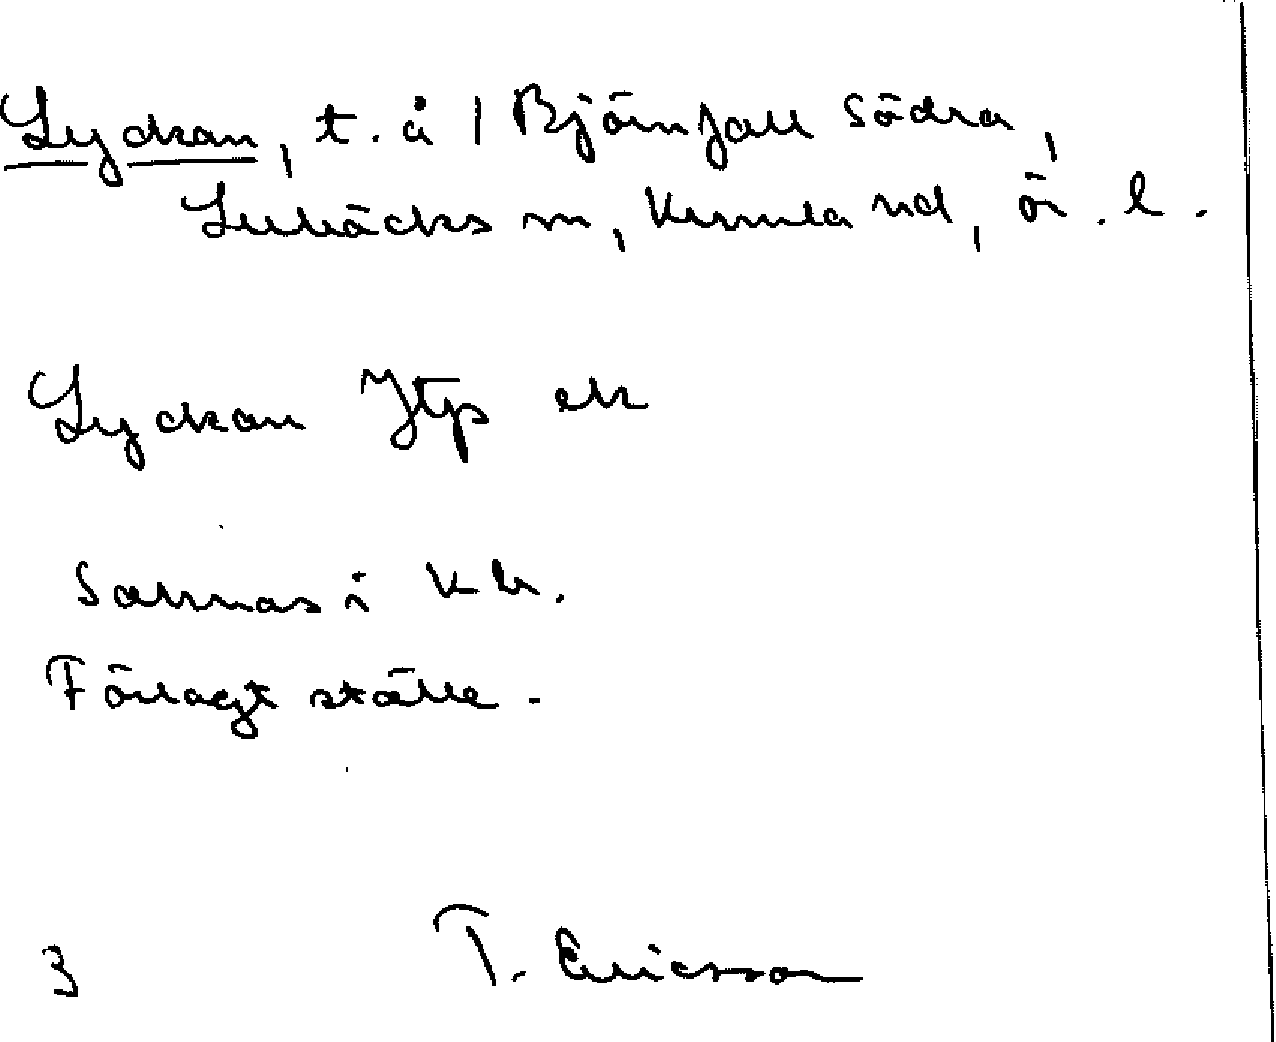 Lyckan, t. å 1 Björnfall Södra,
Lerbäcks sn, Kumla hd, ör. l.
Lyckan Jtp ek
Saknas i kb.
Förlagt ställe.
3 T. Ericsson